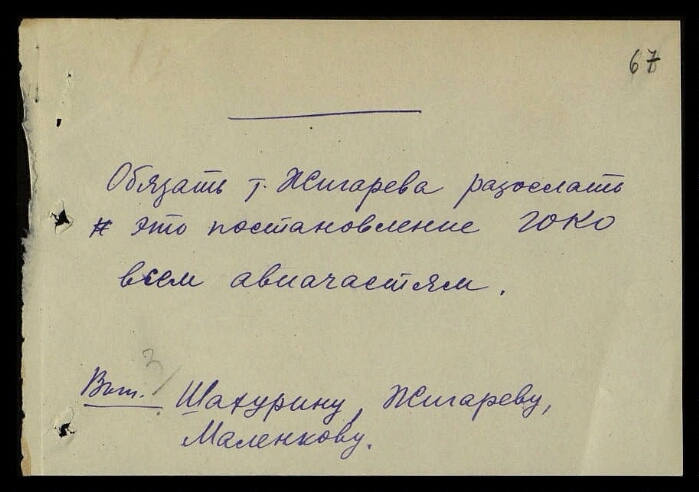 67
Обязать т. Жигарева разослать
это постановление ГОКО
всем авиачастям.
Вып. Шахурину, Жигареву,
Маленкову.